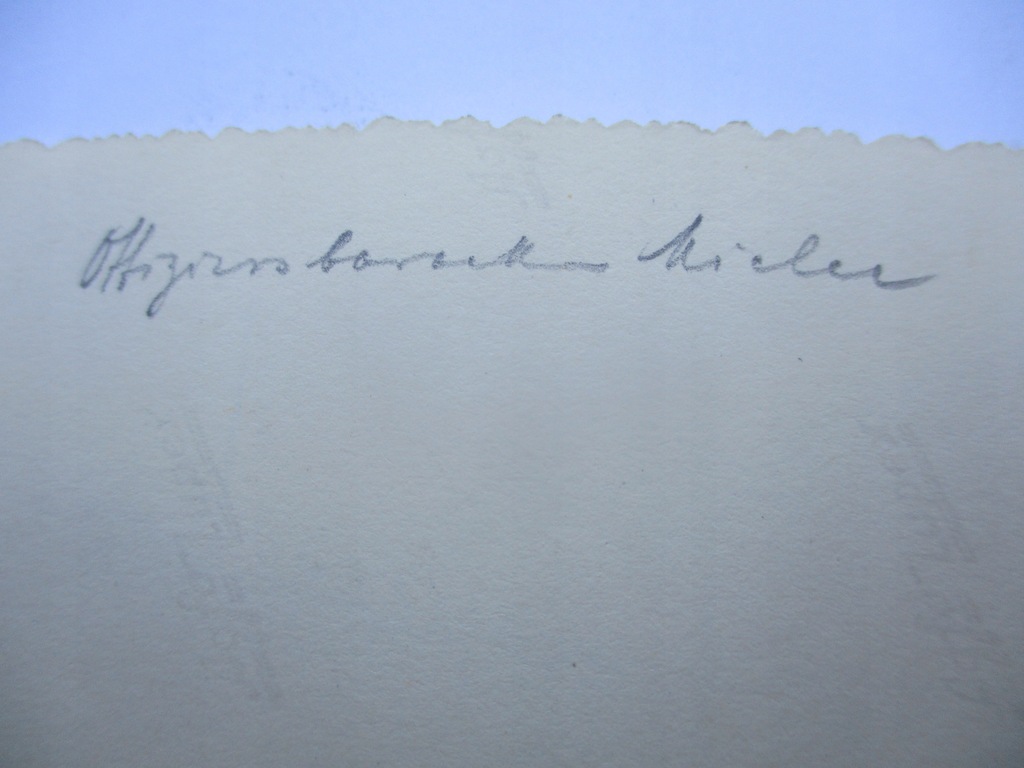 Offiziersbaracke Mielec